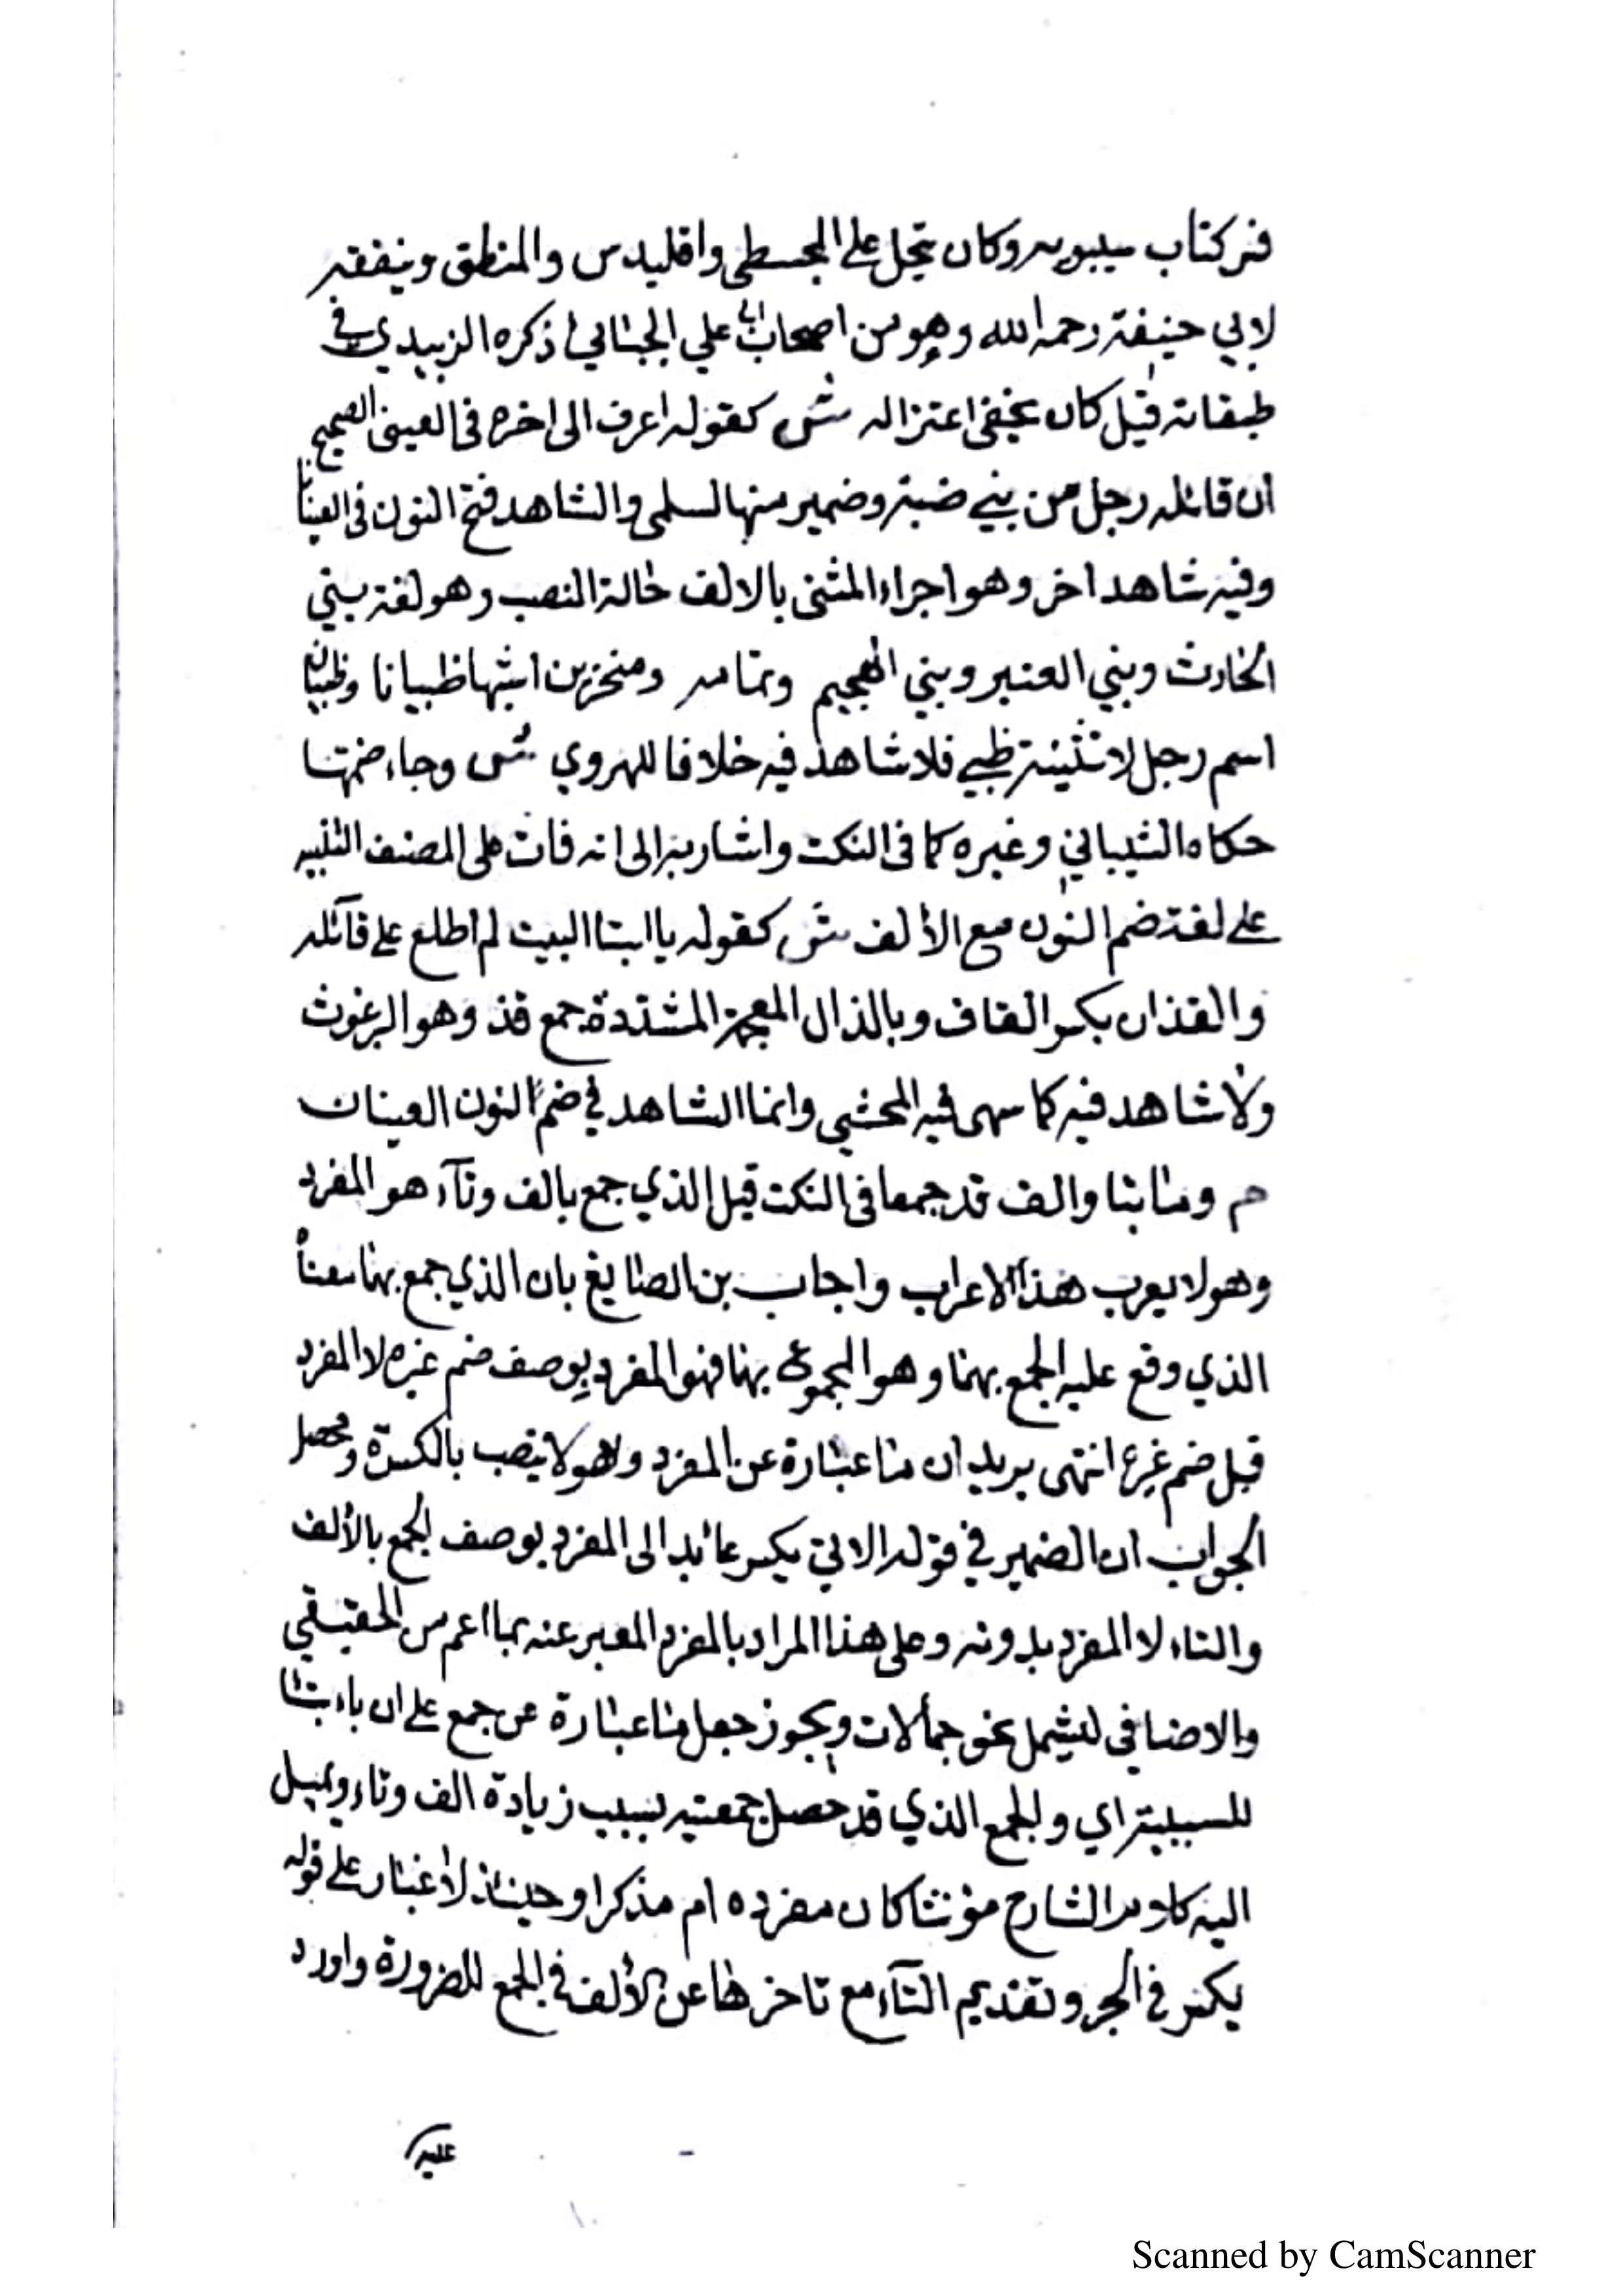 فسر كتاب سيبويه وكان يحل على المجسطي واقليدس والمنطق ويتفقه
لابي حنيفة رحمه الله وهو من اصحاب ابي علي الجبائي ذكره الزبيدي في
طبقاته قيل كان يخفي اعتزاله ش كقوله اعرف الى اخره في العيني الصحيح
ان قائله رجل من بني ضبة وضمير منها لسلمى والشاهد فتح النون في العينانا
وفيه شاهد اخر وهو اجراء المثنى بالالف حالة النصب وهو لغة بني
الحارث وبني العنبر وبني الهجيم وتمامه ومنخرين اشبها ظبيانا وظبيان
اسم رجل لا تثنية ظبي فلا شاهد فيه خلافا للهروي ش وجاء ضمها
حكاه الشيباني وغيره كما في النكت واشار به الى انه فات على المصنف التنبيه
على لغة ضم النون مع الألف ش كقوله يا ابتا البيت لم اطلع على قآئله
والقذان بكسر القاف وبالذال المعجمة المشددة جمع قذ وهو البرغوث
ولا شاهد فيه كما سهى فيه المحشي وانما الشاهد في ضم النون العينان
م وما بتا والف قد جمعا في النكت قيل الذي جمع بالف وتآء هو المفرد
وهو لا يعرب هذا الاعراب واجاب بن الصايغ بان الذي جمع بهما معناه
الذي وقع عليه الجمع بهما وهو المجموع بهما فهو المفرد بوصف ضم غيره لا المفرد
قبل ضم غيره انتهى يريد ان ما عبارة عن المفرد وهو لا ينصب بالكسرة ومحصل
الجواب ان الضمير في قوله الاتي يكسر عائد الى المفرد بوصف الجمع بالألف
والتاء لا المفرد بدونه وعلى هذا المراد بالمفرد المعبر عنه بما اعم من الحقيقي
والاضافي ليشمل نحو جمالات ويجوز جعل ما عبارة عن جمع على ان باء بتا
للسببية اي والجمع الذي قد حصل جمعيته بسبب زيادة الف وتاء ويميل
اليه كلام الشارح مؤنثا كان مفرده ام مذكرا وحينئذ لا غبار على قوله
يكسر في الجر وتقديم التآء مع تاخرها عن الألف في الجمع للضرورة واورد
عليه
Scanned by CamScanner